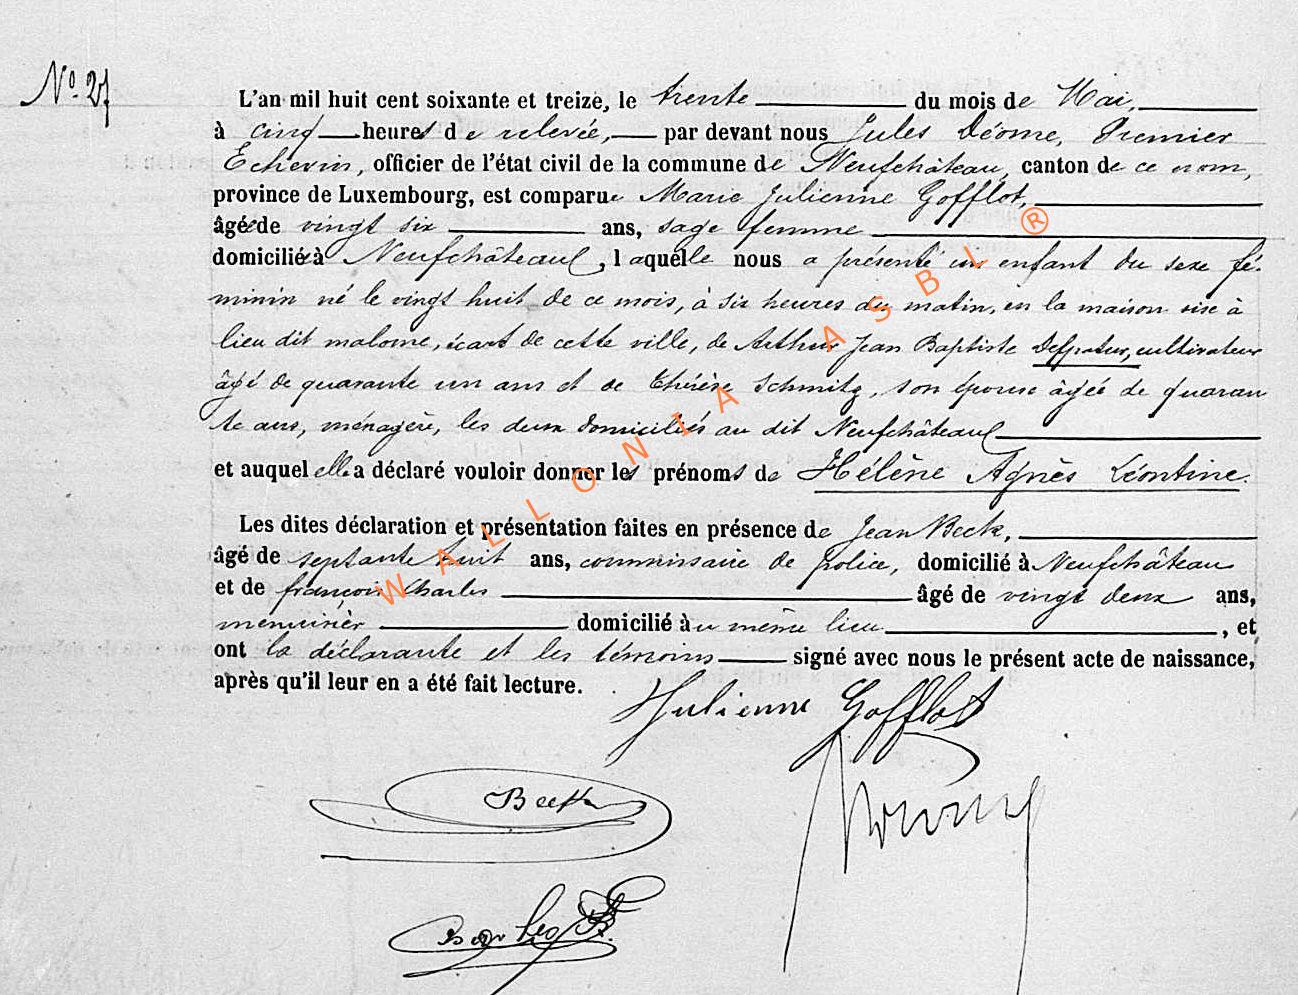 No. 27
L'an mil huit cent soixante et treize, le trente du mois de Mai,
à cinq heures de relevée, par devant nous Jules Déome, Premier
Echevin, officier de l'état civil de la commune de Neufchâteau, canton de ce nom,
province de Luxembourg, est comparue Marie Julienne Gofflot,
âgée de vingt six ans, sage femme
domiciliée à Neufchâteau, laquelle nous a présenté un enfant du sexe fé-
minin né le vingt huit de ce mois, à six heures du matin, en la maison sise à
lieu dit malome, écart de cette ville, de Arthur Jean Baptiste cultivateur
âgé de quarante un ans et de Thérèse Schmitz, son épouse âgée de quaran
te ans, ménagère, les deux domiciliés au dit Neufchâteau
et auquel elle a déclaré vouloir donner les prénoms de Hélène Agnès Léontine.
Les dites déclaration et présentation faites en présence de Jean Beck,
âgé de septante huit ans, commissaire de police, domicilié à Neufchâteau
et de françois Charles âgé de vingt deux ans,
menuisier domicilié au même lieu, et
ont la déclarante et les témoins signé avec nous le présent acte de naissance,
après qu'il leur en a été fait lecture.
Julienne Gofflot
Beck
WALLONIA ASBL ®